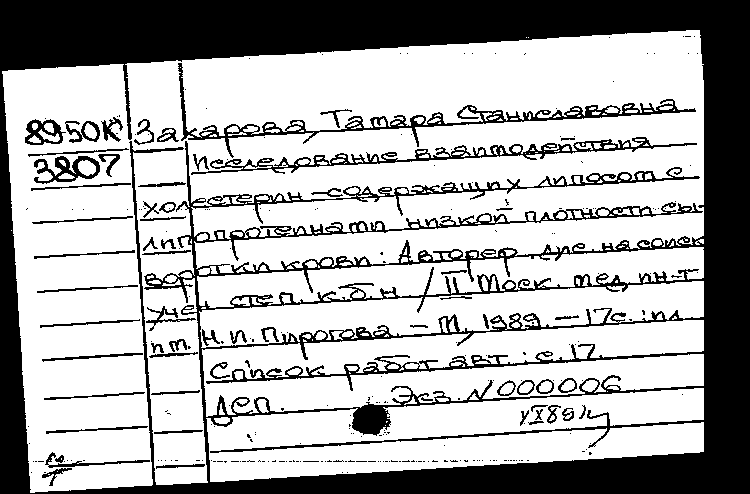 8950К Захарова, Тамара Станиславовна
3807 Исследование взаимодействия
холестерин-содержащих липосом с
липопротеинами низкой плотности сы-
воротки крови: Автореф. дис. на соиск
учен степ. к.б.н / II Моск. мед. ин-т
им. Н.И. Пирогова. – М., 1989. – 17с. : ил
Список работ авт.: с. 17.
ДСП. Экз. N 000006